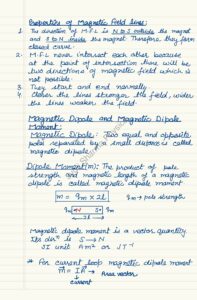 Properties of Magnetic Field Lines:
1. The direction of M.F.L is N to S outside the magnet
and S to N inside the magnet. Therefore they form
closed curve.
2. M.F.L never intersect each other because
at the point of intersection there will be
two directions of magnetic field which is
not possible.
3. They start and end normally.
4. Closer the lines stronger the field, wider
the lines weaker the field.
Magnetic Dipole and Magnetic Dipole
Moment:
Magnetic Dipole: Two equal and opposite
poles separated by a small distance is called
magnetic dipole.
Dipole Moment(m): The product of pole
strength and magnetic length of a magnetic
dipole is called magnetic dipole moment
m = qm × 2l
qm → pole strength
N S
2l
Magnetic dipole moment is a vector quantity.
Its dirn is S → N
SI unit Am² or JT⁻¹
* For current loop magnetic dipole moment
m = IA → Area vector
current